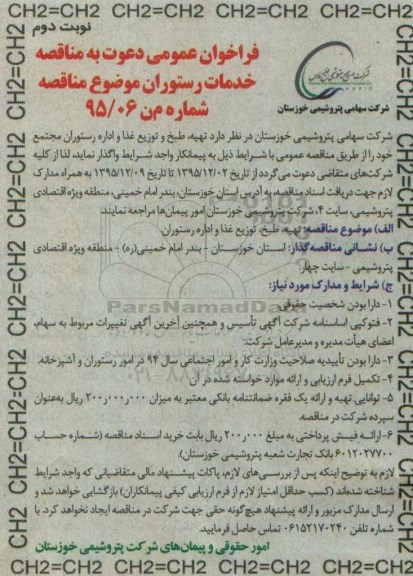 CH2=CH2 CH2=CH2 CH2=CH2 CH2=CH2 CH2
نوبت دوم
فراخوان عمومی دعوت به مناقصه
خدمات رستوران موضوع مناقصه
شماره من ۹۵/۰۶
شرکت سهامی پتروشیمی خوزستان
شرکت سهامی پتروشیمی خوزستان در نظر دارد تهیه، طبخ و توزیع غذا و اداره رستوران مجتمع
خود را از طریق مناقصه عمومی با شرایط ذیل به پیمانکار واجد شرایط واگذار نماید، لذا از کلیه
شرکت‌های متقاضی دعوت می‌گردد از تاریخ ۱۳۹۵/۱۲/۰۲ تا تاریخ ۱۳۹۵/۱۲/۰۹ به همراه مدارک
لازم جهت دریافت اسناد مناقصه، به آدرس استان خوزستان، بندر امام خمینی، منطقه ویژه اقتصادی
پتروشیمی، سایت ۴، شرکت پتروشیمی خوزستان امور پیمان‌ها مراجعه نمایند.
الف) موضوع مناقصه: تهیه، طبخ، توزیع غذا و اداره رستوران.
ب) نشانی مناقصه‌گذار: استان خوزستان - بندر امام خمینی(ره) - منطقه ویژه اقتصادی
پتروشیمی - سایت چهار.
ج) شرایط و مدارک مورد نیاز:
ParsNamadData
۱- دارا بودن شخصیت حقوقی
۲- فتوکپی اساسنامه شرکت آگهی تأسیس و همچنین آخرین آگهی تغییرات مربوط به سهام،
اعضای هیأت مدیره و مدیرعامل شرکت.
۳- دارا بودن تأییدیه صلاحیت وزارت کار و امور اجتماعی سال ۹۴ در امور رستوران و آشپزخانه.
۴- تکمیل فرم ارزیابی و ارائه موارد خواسته شده در آن
۵- توانایی تهیه و ارائه یک فقره ضمانتنامه بانکی معتبر به میزان ۲۰۰٫۰۰۰٫۰۰۰ ریال به‌عنوان
سپرده شرکت در مناقصه.
۶- ارائه فیش پرداختی به مبلغ ۲۰۰٫۰۰۰ ریال بابت خرید اسناد مناقصه (شماره حساب
۶۰۱۲۰۲۷۷۰۰ بانک تجارت شعبه پتروشیمی خوزستان).
لازم به توضیح اینکه پس از بررسی‌های لازم، پاکات پیشنهاد مالی متقاضیانی که واجد شرایط
شناخته شده‌اند (کسب حداقل امتیاز لازم از فرم ارزیابی کیفی پیمانکاران) بازگشایی خواهد شد و
ارسال مدارک مزبور و ارائه پیشنهاد هیچ‌گونه حقی جهت شرکت در مناقصه ایجاد نخواهد کرد. با
شماره تلفن ۰۶۱۵۲۱۷۰۲۴۰ تماس حاصل فرمایید.
امور حقوقی و پیمان‌های شرکت پتروشیمی خوزستان
CH2=CH2 CH2=CH2 CH2=CH2 CH2=CH2 CH2